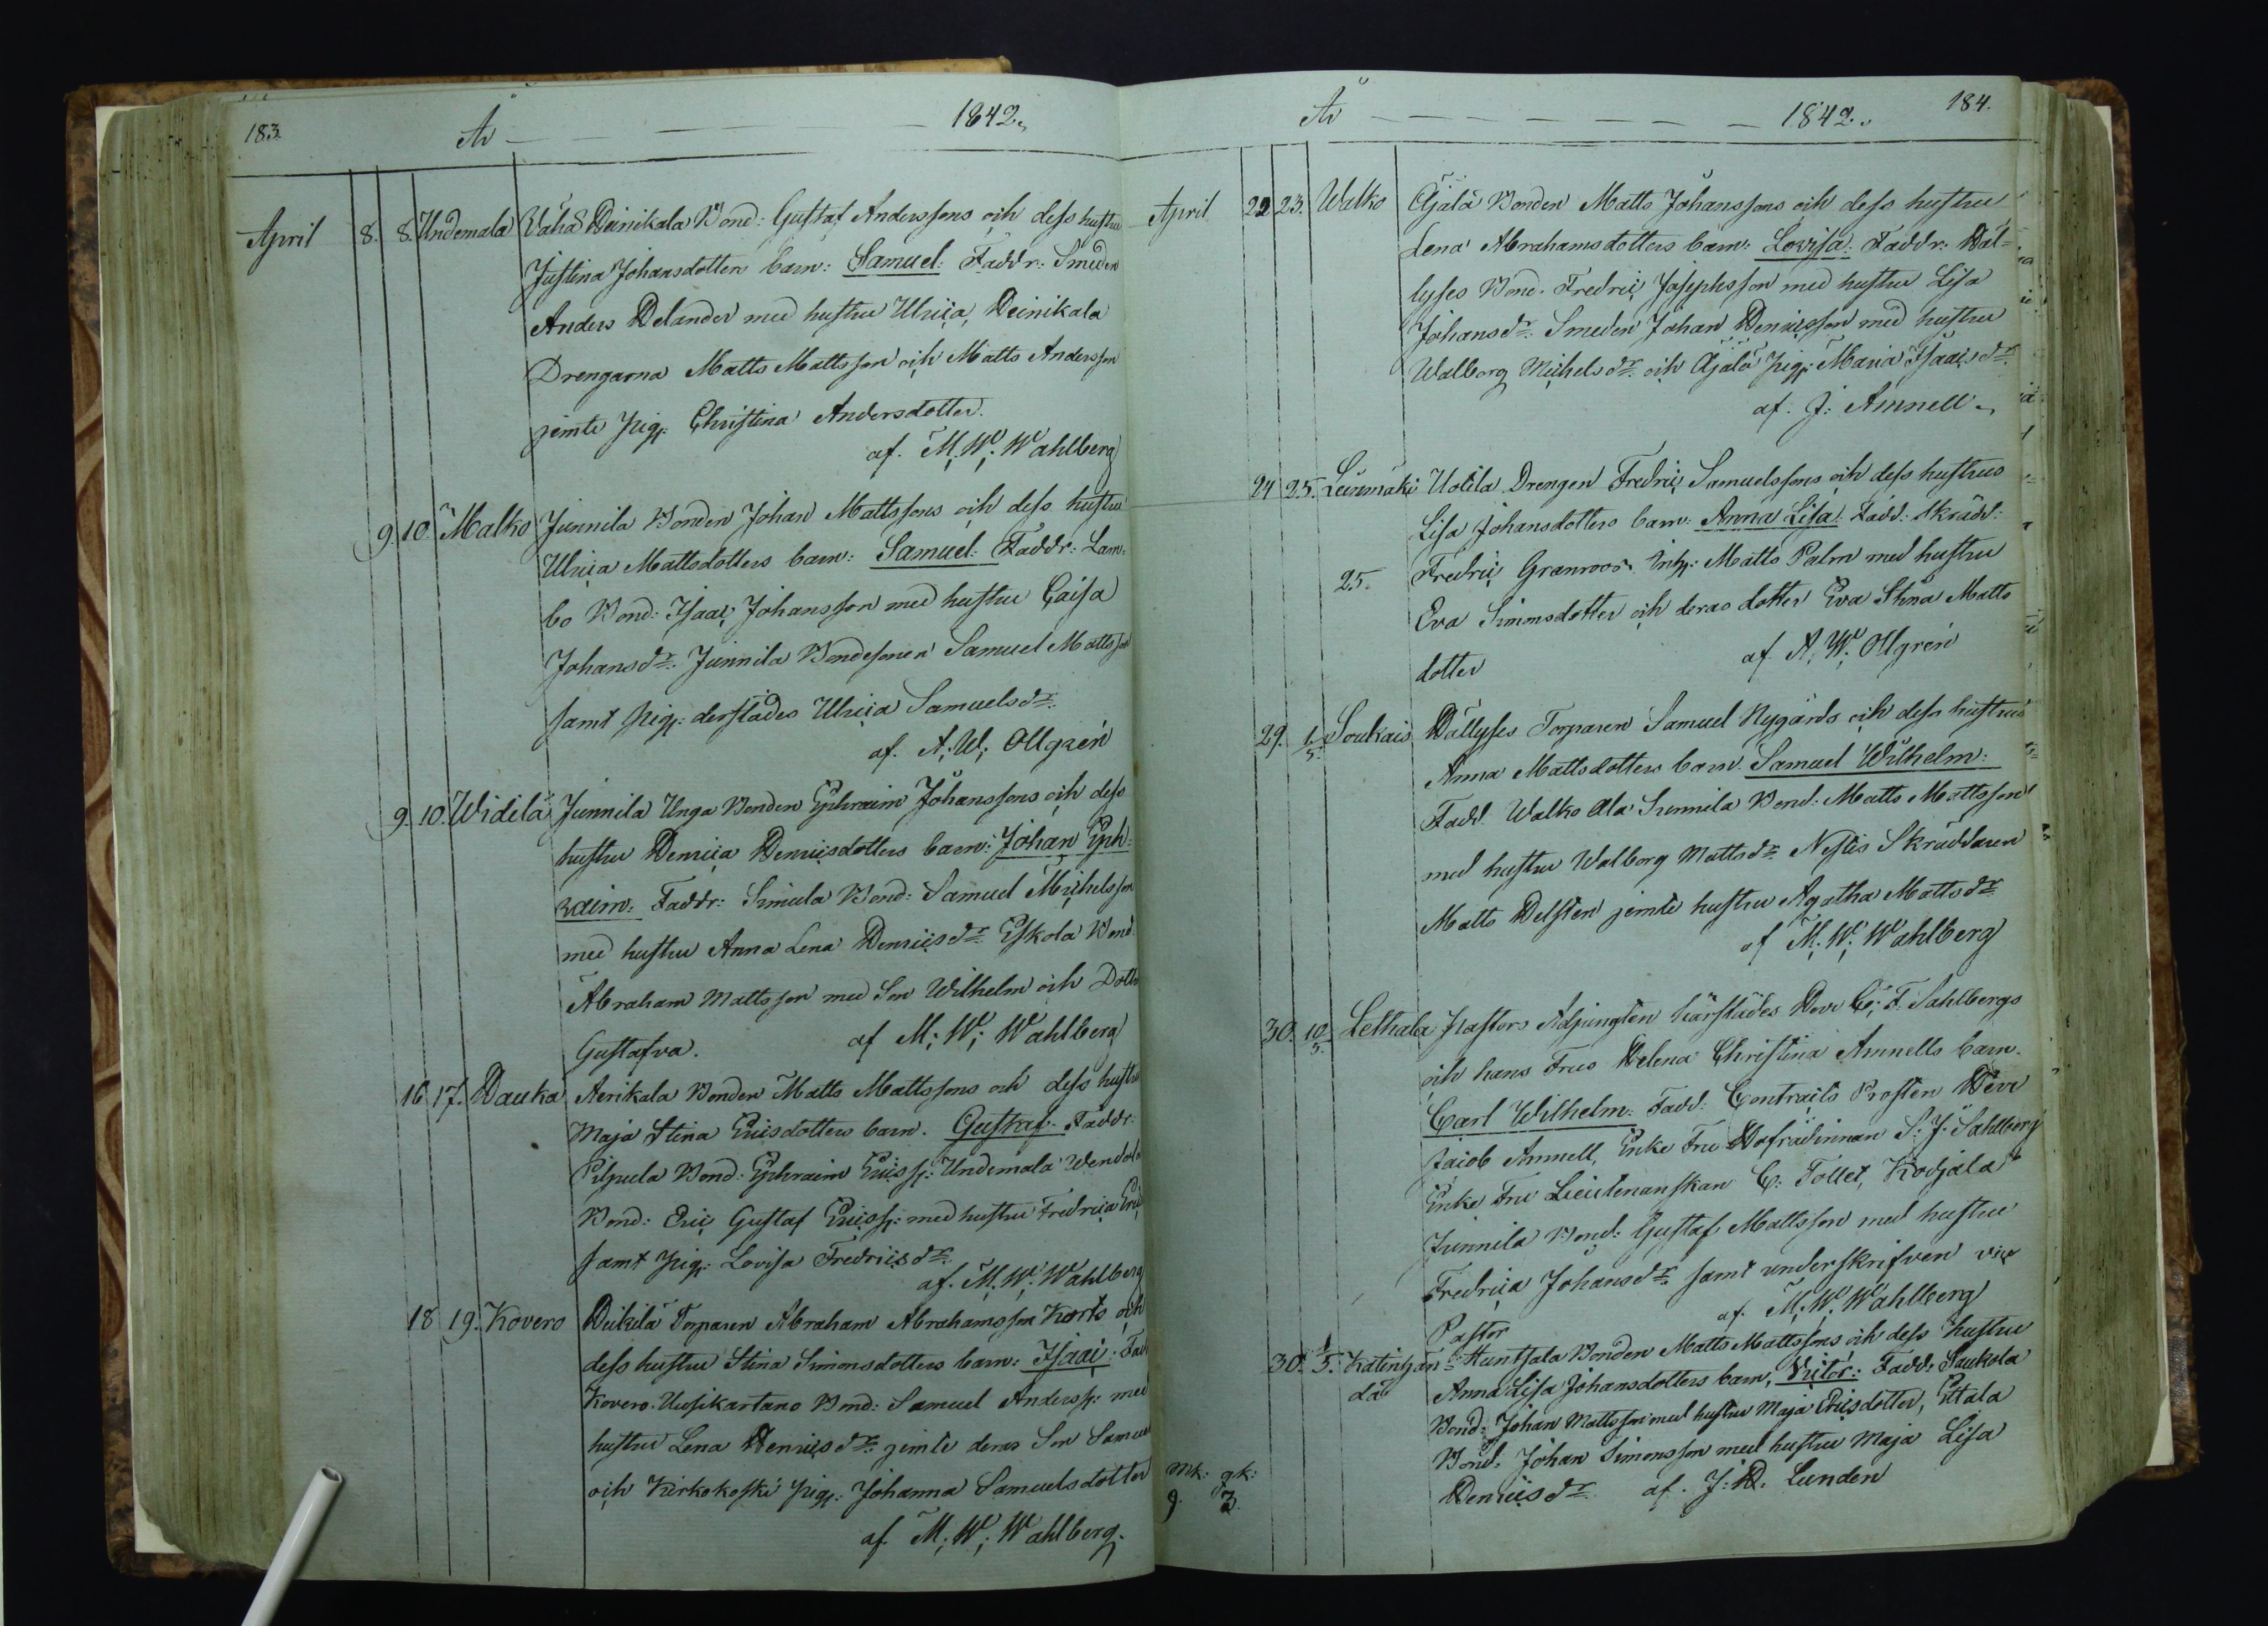 183.
År 1842.
April 8. 8. Undemala Vähä Heinikala Bond: Gustaf Anderssons och dess hustru
Justina Johansdotters barn: Samuel: Faddr: Smeden
Anders Helander med hustru Ulrica, Heinikala
Drengarna Matts Mattsson och Matts Andersson
jemte pig: Christina Andersdotter.
af. M. W. Wahlberg
9. 10. Malko Junnila Bonden Johan Mattssons och dess hustru
Ulrica Mattsdotters barn: Samuel: Faddr: Lam-
bo Bond: Isaac Johansson med hustru Caisa
Johansdr: Junnila Bondesonen Samuel Mattsson
samt pig: derstädes Ulrica Samuelsdr:
af. A. W. Ollgren
9. 10. Widilä Junnila Unga Bonden Ephraim Johanssons och dess
hustru Henrica Henricsdotters barn: Johan Eph-
raim: Faddr: Simula Bond: Samuel Michelsson
med hustru Anna Lena Henricsdr: Eskola Bond:
Abraham Mattsson med Son Wilhelm och Dotter
Gustafva. af M. W. Wahlberg
16 17. Hauka Aerikala Bonden Matts Mattssons och dess hustru
Maja Stina Ericsdotters barn. Gustaf. Faddr:
Pilpula Bond: Ephraim Ericss: Undemala
Bond: Eric Gustaf Ericss: med hustru Fredrica
samt pig: Lovisa Fredricsdr:
af. M. W. Wahlberg
18 19. Kovero Heikilä Torparen Abraham Abrahamsson Korts och
dess hustru Stina Simonsdotters barn: Isaac: Fad
Kovero Uusikartano Bond: Samuel Anderss: med
hustru Lena Henricsdr: jemte deras Son Samuel
och Kirkokoski pig: Johanna Samuelsdotter
af M. W. Wahlberg.
184.
År 1842.
April 22 23. Walko Äjälä Bonden Matts Johanssons och dess hustru
Lena Abrahamsdotters barn: Lovisa: Faddr: Häl-
lyses Bond. Fredric Josephsson med hustru Lisa
Johansdr: Smeden Johan Henricsson med hustru
Walborg Michelsdr: och Äjälä pig: Maria Isaacsdr:
af. J. Amnell
24 25. Leinmäki Uotila Drengen Fredric Samuelssons och dess hustrus
Lisa Johansdotters barn: Anna Lisa: Fadd: Skrädd:
25. Fredric Granroos. Inh: Matts Palm med hustru
Eva Simonsdotter och deras dotter Eva Stina Matts
dotter af A. W. Ollgren
29. 1/5. Soukais Hällyses Torparen Samuel Nygårds och dess hustrus
Anna Mattsdotters barn: Samuel Wilhelm:
Fadd. Walko Ala Junnila Bond: Matts Mattsson
med hustru Walborg Mattsdr: Nestis Skräddaren
Matts Helsten jemte hustru Agatha Mattsdr:
af M. W. Wahlberg
30. 10/5. Lethala Pastors Adjungten härstädes Herr C. F. Sahlbergs
och hans Frus Helena Christina Amnells barn.
Carl Wilhelm. Fadd: Contracts Prosten Herr
Jacob Amnell, Enke Fru Hofrådinnan S. J. Sahlberg
Enke Fru Lieutenanskan C. Tollet, Kodjala
Junnila Bond: Gustaf Mattsson med hustru
Fredrica Johansdr: samt underskrifven vice
Pastor af. M. W. Wahlberg
30. 1/5. Katinhän- Huntsala Bonden Matts Mattssons och dess hustru
da Anna Lisa Johansdotters barn, Victor: Fadd: Saukola
Bond: Johan Mattsson med hustru Maja Ericsdotter, Ettala
Bond: Johan Simonsson med hustru Maja Lisa
Henricsdr: af. J. H. Lunden
Mk: qk:
9. 3.